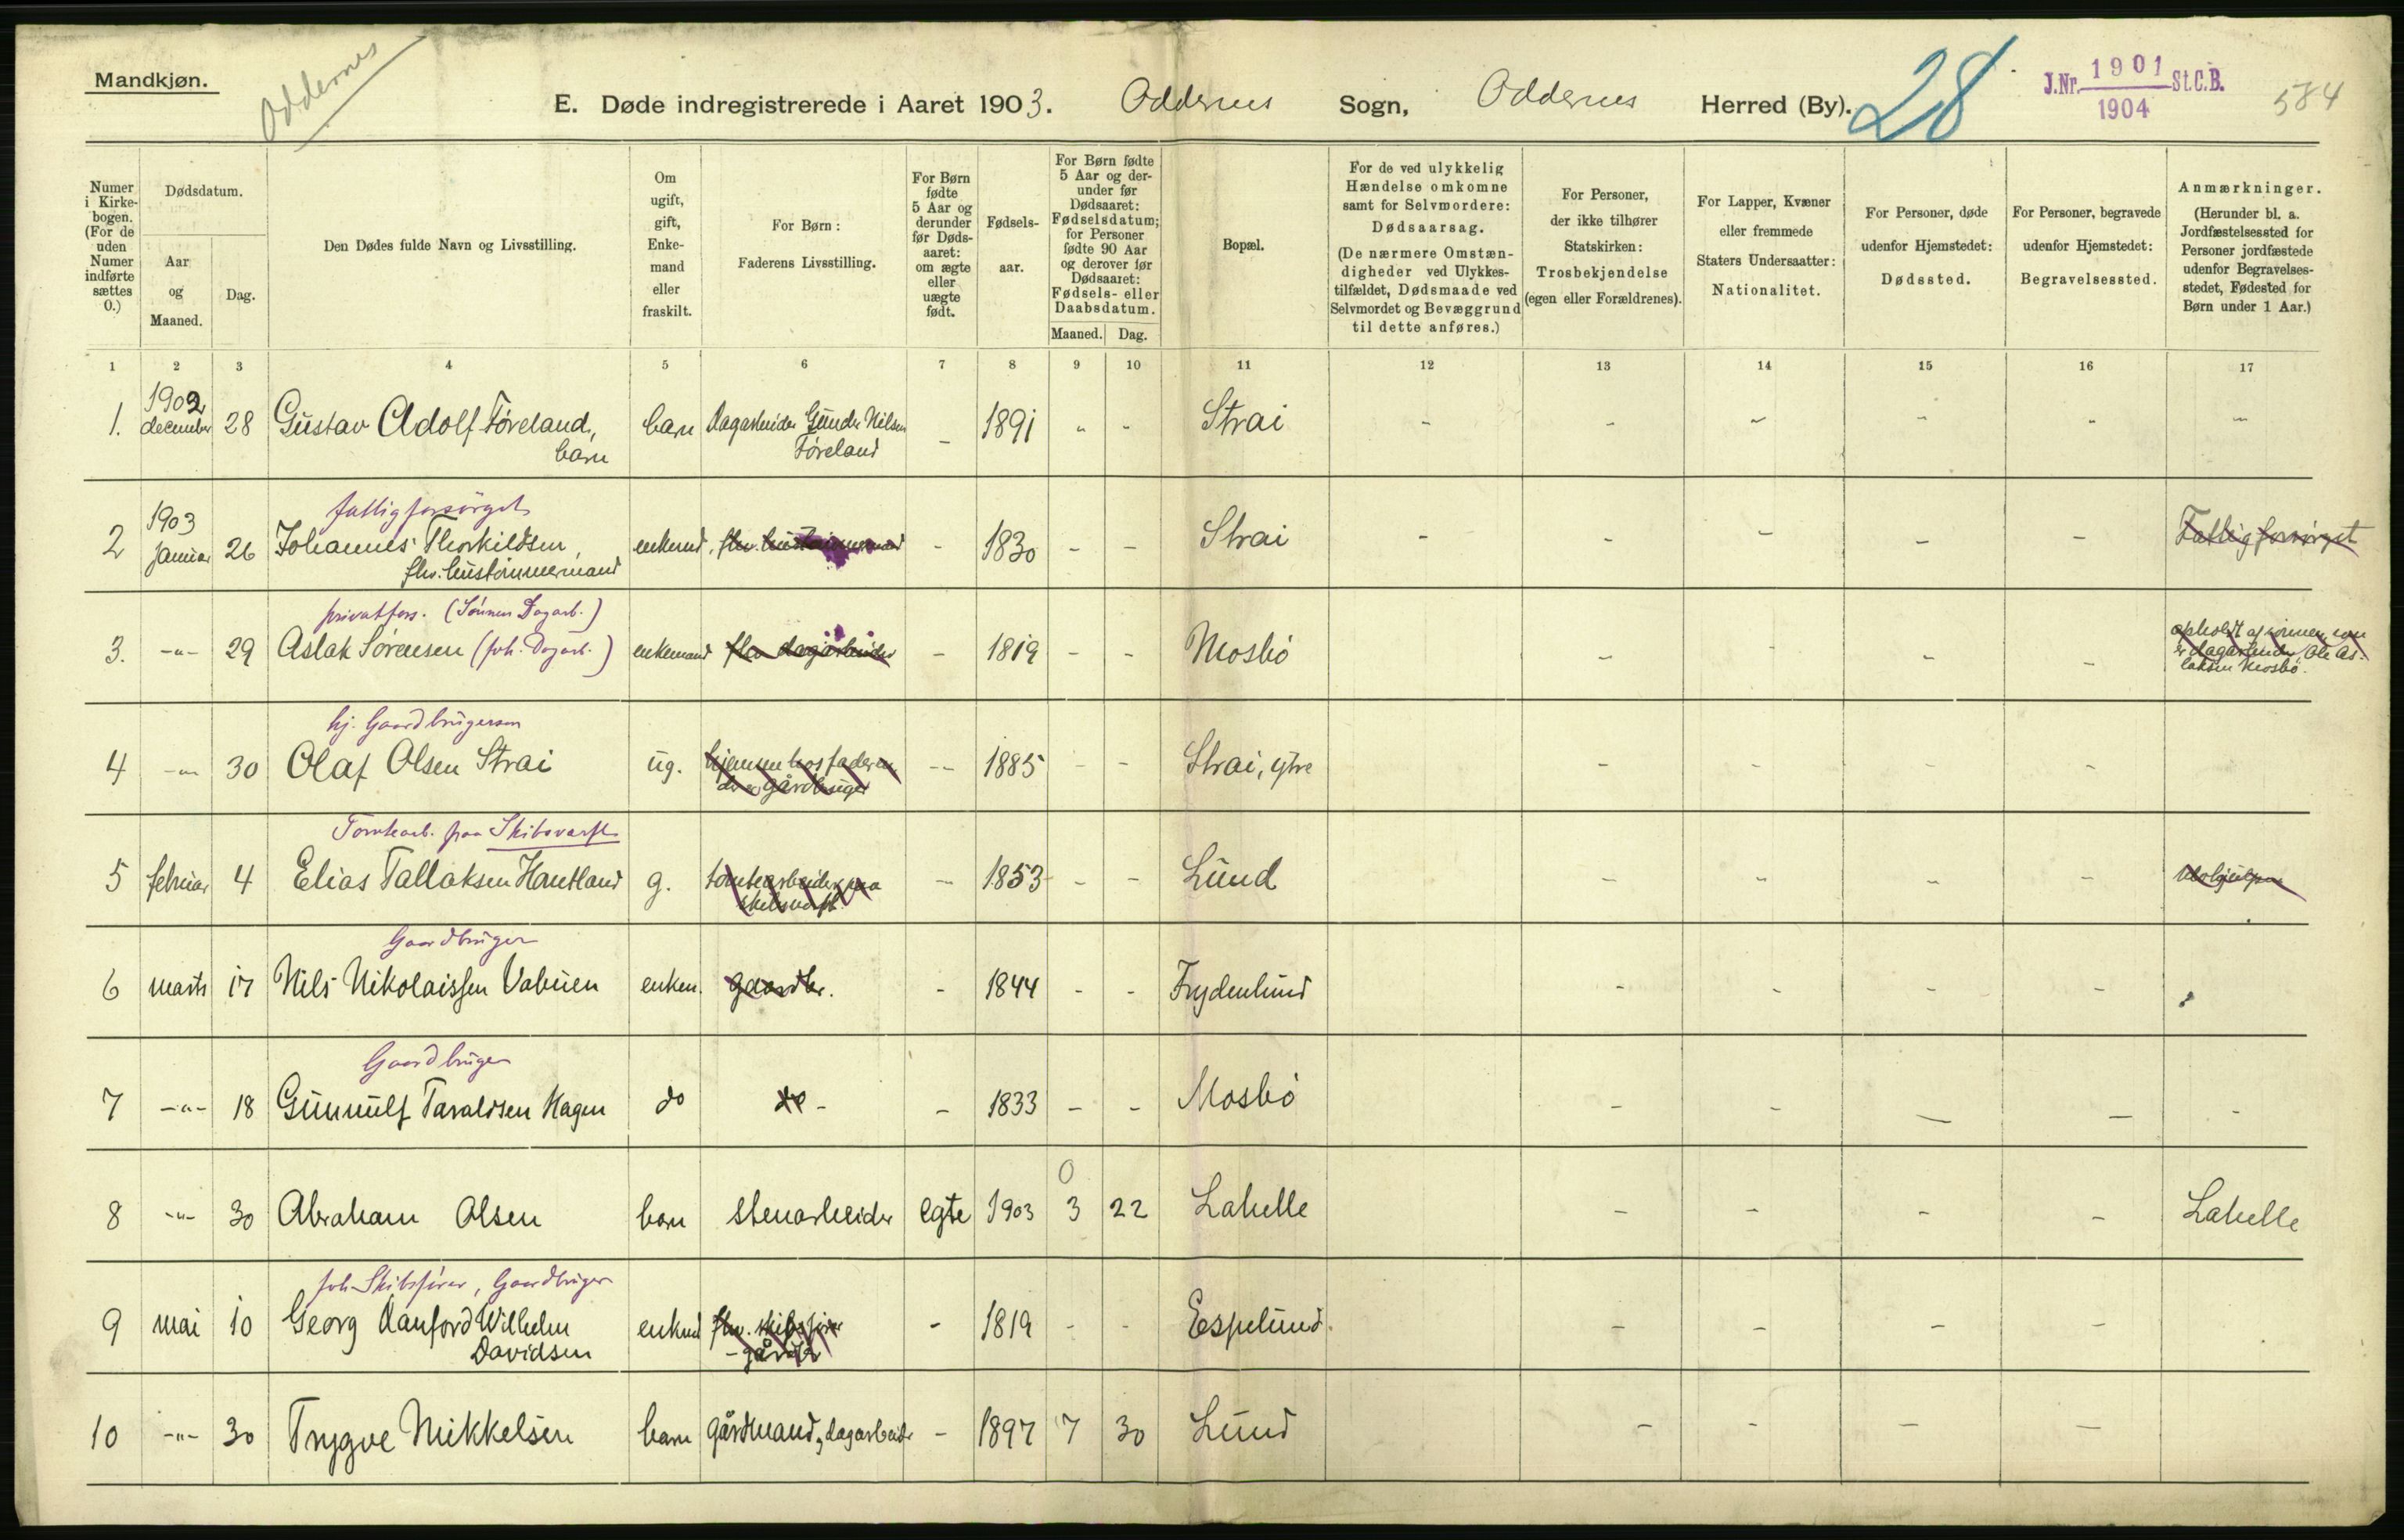 Mandkjøn.
Oddernes
E. Døde indregistrerede i Aaret 1903. Oddernes Sogn, Oddernes Herred (By).
28
J.Nr. 1901 St.C.B.
1904
584
Numer i Kirke-bogen. (For de uden Numer indførte sættes 0.)
Dødsdatum.
Aar og Maaned.
Dag.
Den Dødes fulde Navn og Livsstilling.
Om ugift, gift, Enke-mand eller fraskilt.
For Børn: Faderens Livsstilling.
For Børn fødte 5 Aar og derunder før Døds-aaret: om ægte eller uægte født.
Fødsels-aar.
For Børn fødte 5 Aar og der-under før Dødsaaret: Fødselsdatum; for Personer fødte 90 Aar og derover før Dødsaaret: Fødsels- eller Daabsdatum.
Maaned. Dag.
Bopæl.
For de ved ulykkelig Hændelse omkomne samt for Selvmordere: Dødsaarsag. (De nærmere Omstæn-digheder ved Ulykkes-tilfældet, Dødsmaade ved Selvmordet og Bevæggrund til dette anføres.)
For Personer, der ikke tilhører Statskirken: Trosbekjendelse (egen eller Forældrenes).
For Lapper, Kvæner eller fremmede Staters Undersaatter: Nationalitet.
For Personer, døde udenfor Hjemstedet: Dødssted.
For Personer, begravede udenfor Hjemstedet: Begravelsessted.
Anmærkninger. (Herunder bl. a. Jordfæstelsessted for Personer jordfæstede udenfor Begravelses-stedet, Fødested for Børn under 1 Aar.)
1 2 3 4 5 6 7 8 9 10 11 12 13 14 15 16 17
1902
1. december 28 Gustav Adolf Føreland, barn Dagarbeider Gunder Nilsen - 1891 " " Strai - - - - - -
barn Føreland
fattigforsørget
1903
2 januar 26 Johannes Thorkildsen, enkemd. flv. hustømmermand - 1830 - - Strai - - - - - Fattigforsørget
flv. hustømmermand
privatfors. (Sønnen Dagarb.)
3. -"- 29 Aslak Sørensen (foh. Dagarb.) enkemand flv dagarbeider - 1819 - - Mosbø - - - - opholdt af sønnen som
er dagarbeider, Ole As-
laksen Mosbø.
hj. Gaardbrugersøn
4 -"- 30 Olaf Olsen Strai ug. hjemme hos faderen -- 1885 - - Strai, ytre - - - -
der er gårdbruger
Tomtearb. paa Skibsværft
5 februar 4 Elias Tallaksen Hantland g. tomtearbeider paa - 1853 - - Lund - - - -
skibsværft
Gaardbruger
6 marts 17 Nils Nikolaissen Vabuen enkem. gaardbr. - 1844 - - Frydenlund - - - -
Gaardbruger
7 -"- 18 Gunnulf Taraldsen Hagen do do - - 1833 - - Mosbø - - - - -
0
8 -"- 30 Abraham Olsen barn stenarbeider egte 1903 3 22 Lahelle - - - - Lahelle
foh. Skibsfører, Gaardbruger
9 mai 10 Georg Danford Wilhelm enkmd flv. skibsfører - 1819 - - Espelund. - - - -
Davidsen - gårdbr
10 -"- 30 Trygve Mikkelsen barn gårdmand, dagarbeider - 1897 7 30 Lund - - - -